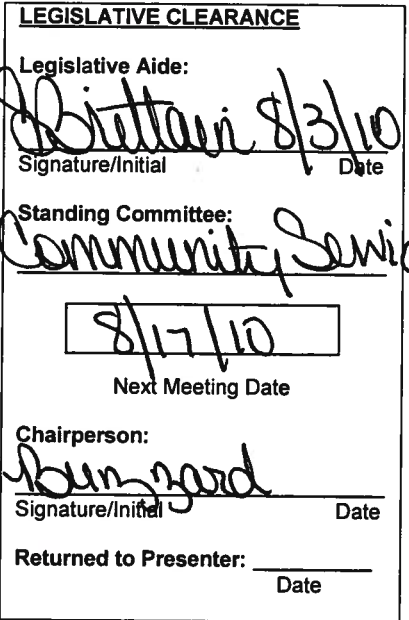 LEGISLATIVE CLEARANCE
Legislative Aide:
Brittain 8/3/10
Signature/Initial Date
Standing Committee:
Community Servic
8/17/10
Next Meeting Date
Chairperson:
Buzzard
Signature/Initial Date
Returned to Presenter:
Date